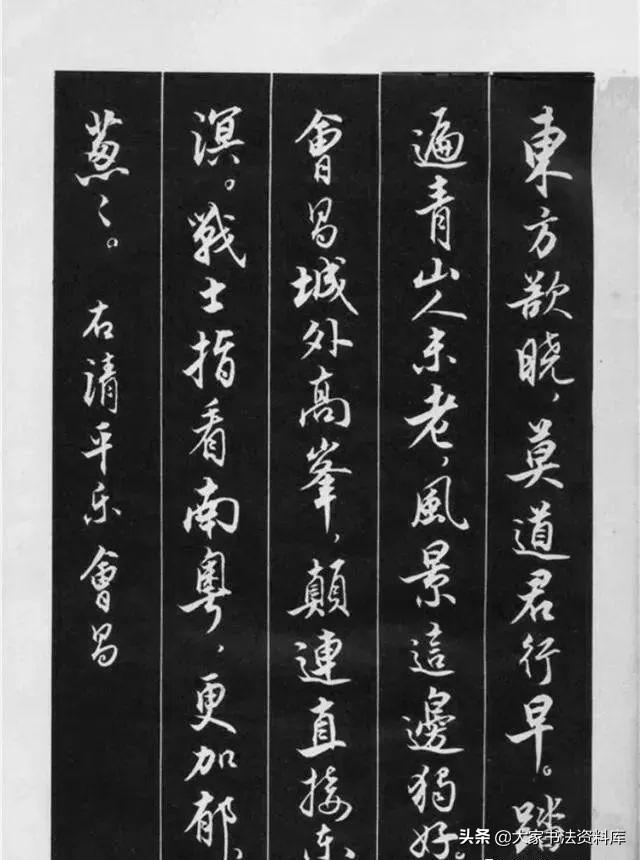 東方欲曉，莫道君行早。踏
遍青山人未老，風景這邊獨好
會昌城外高峯，顛連直接东
溟。戰士指看南粵，更加郁、
葱〻。
右清平乐會昌
头条 @大家书法资料库